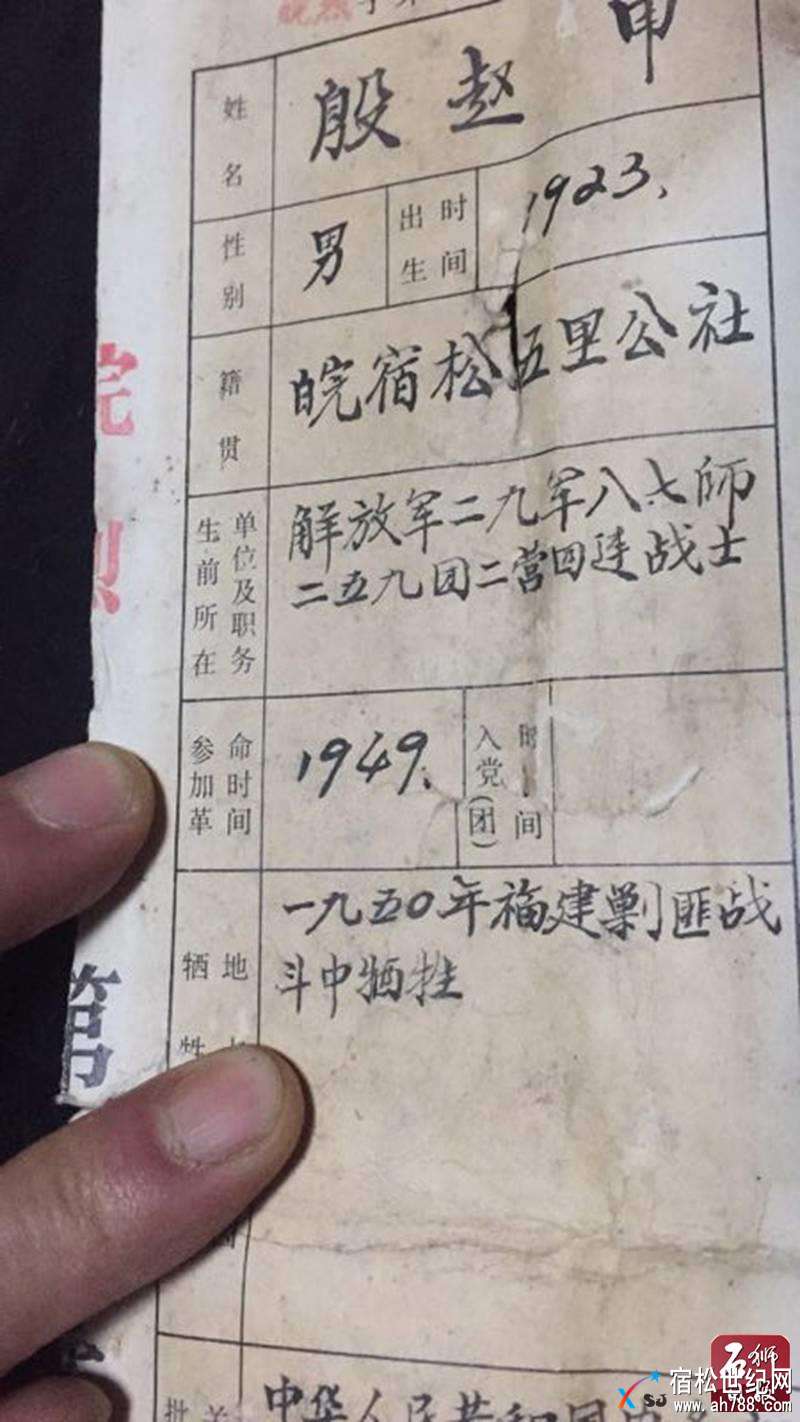 皖烈字第
姓名 殷赵甲
性别 男 出生时间 1923.
籍贯 皖宿松五里公社
生前所在单位及职务 解放军二九军八七师
二五九团二营四连战士
参加革命时间 1949. 入党(团)时间
牺牲地 一九五〇年福建剿匪战
斗中牺牲
批 关 中华人民共和国
皖
烈
第
石狮日报
宿松世纪网
XSJ
www.ah788.com